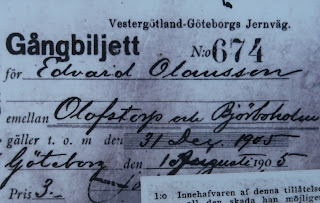 Vestergötland-Göteborgs Jernväg.
Gångbiljett N:o 674
för Edvard Olausson
emellan Olofstorp och Björboholm
gäller t. o. m den 31 Dez. 1905
Göteborg den 1 Augusti 1905
Pris 3.-
1:o Innehafvaren af denna tillåtelse
all den skada han möjligen